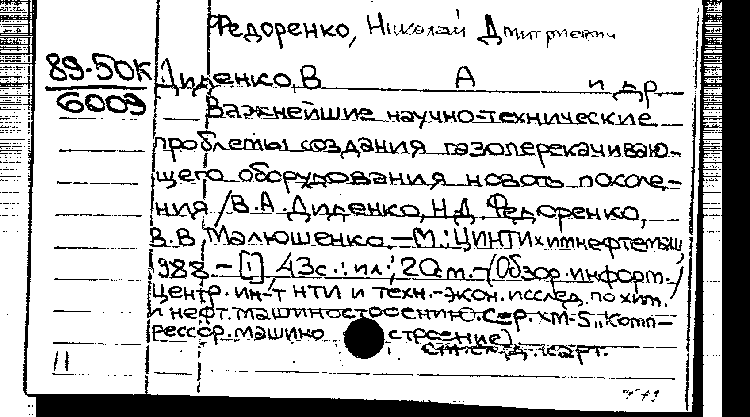 Федоренко, Николай Дмитриевич
89-50К
6009
Диденко, В А и др
Важнейшие научно-технические
проблемы создания газоперекачиваю-
щего оборудования нового поколе-
ния / В.А. Диденко, Н.Д. Федоренко,
В.В. Малюшенко. – М.: ЦИНТИхимнефтемаш,
1988. – [1], 43с.: ил.; 20см. – (Обзор. информ. /
Центр. ин-т НТИ и техн.-экон. исслед. по хим.
и нефт. машиностроению. сер. ХМ-5, „Комп-
рессор. машино строение)
см. след. карт.
11